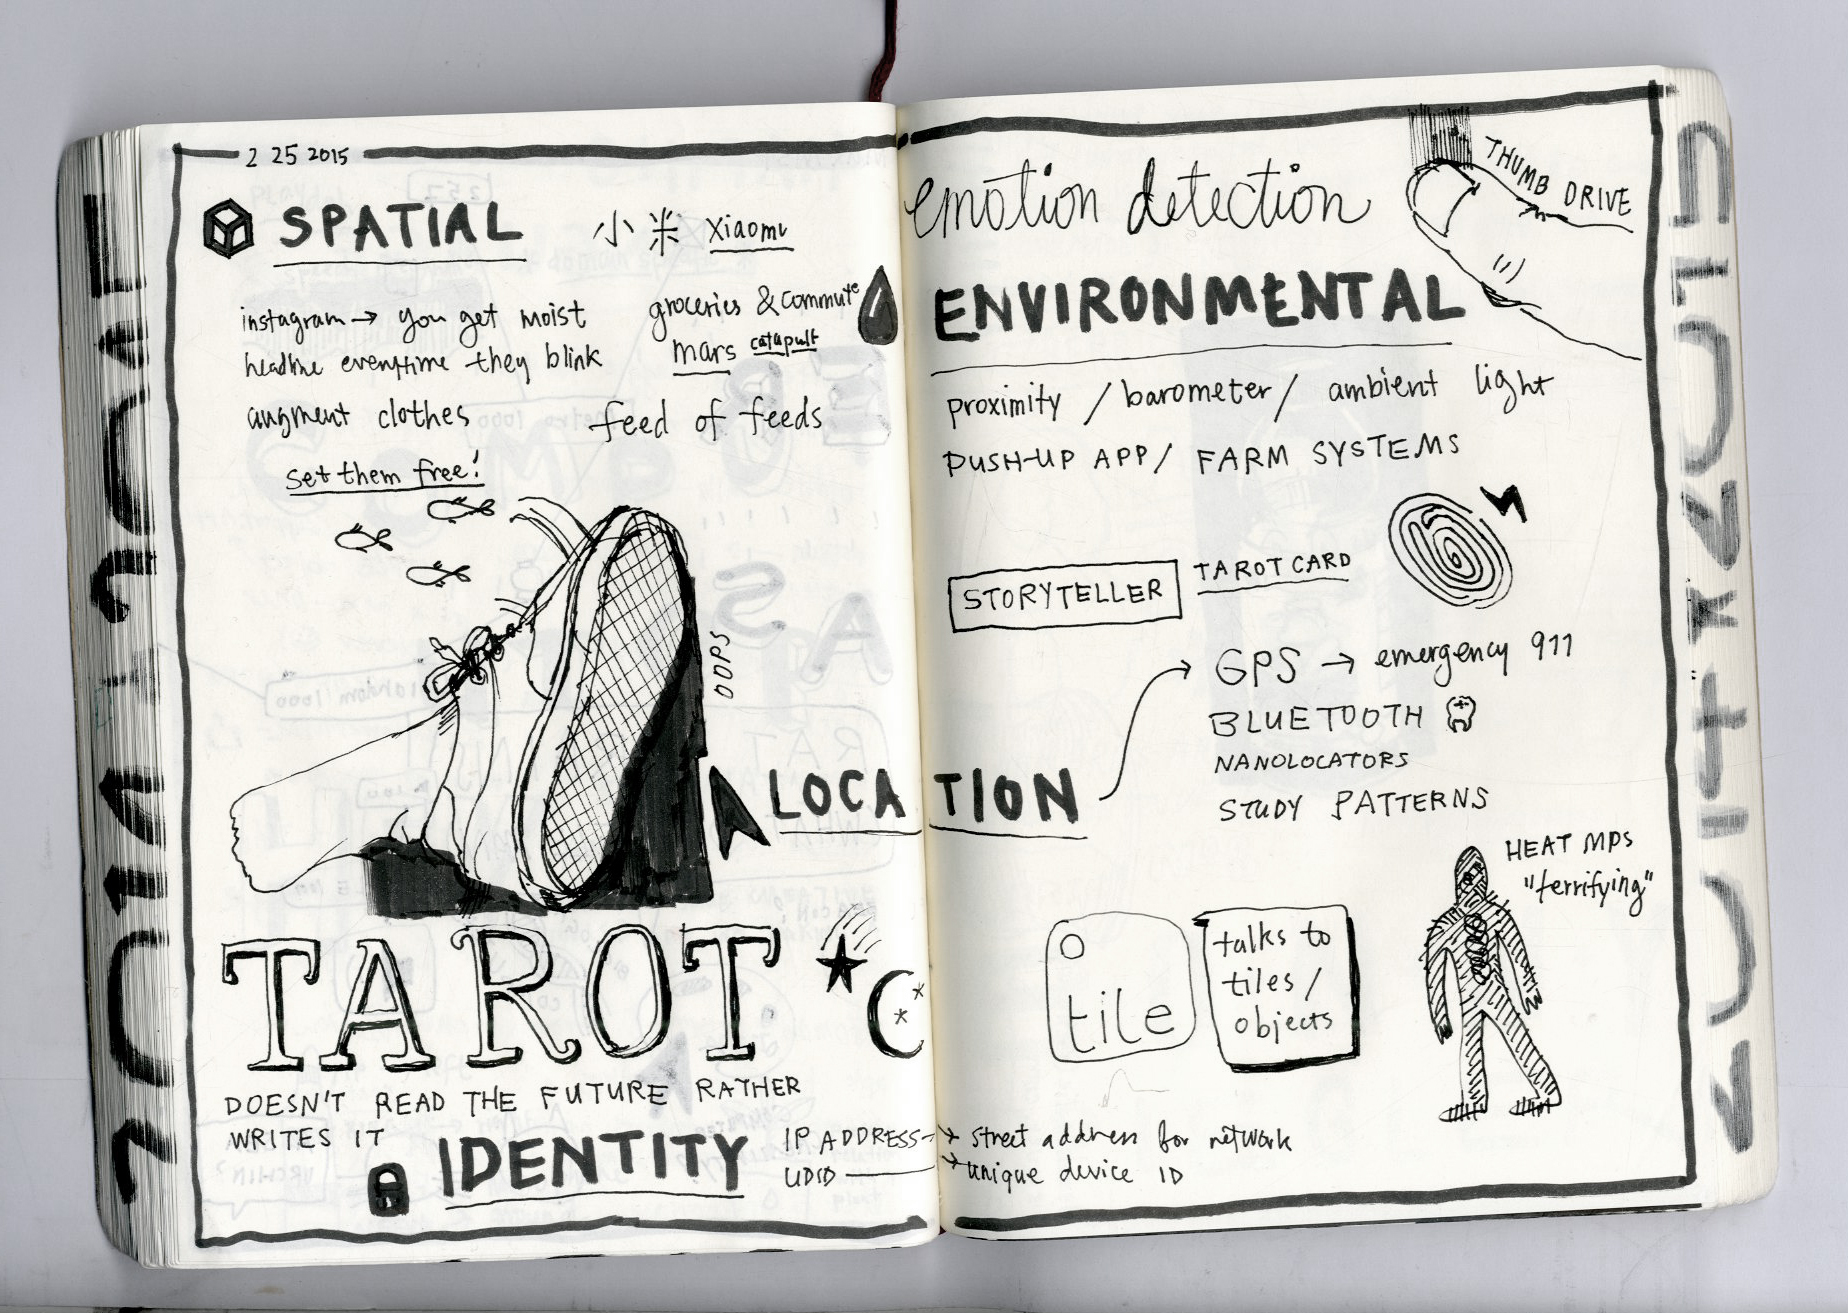 2 25 2015
SPATIAL
小米 Xiaomi
instagram → you get moist
headline everytime they blink
augment clothes
set them free!
groceries & commute
mars catapult
feed of feeds
OOPS
LOCATION
TAROT
DOESN'T READ THE FUTURE RATHER
WRITES IT
IDENTITY
IP ADDRESS → street address for network
UDID → unique device ID
emotion detection
THUMB DRIVE
ENVIRONMENTAL
proximity / barometer / ambient light
PUSH-UP APP / FARM SYSTEMS
STORYTELLER
TAROT CARD
GPS → emergency 911
BLUETOOTH
NANOLOCATORS
STUDY PATTERNS
HEAT MPS
"terrifying"
tile
talks to
tiles /
objects